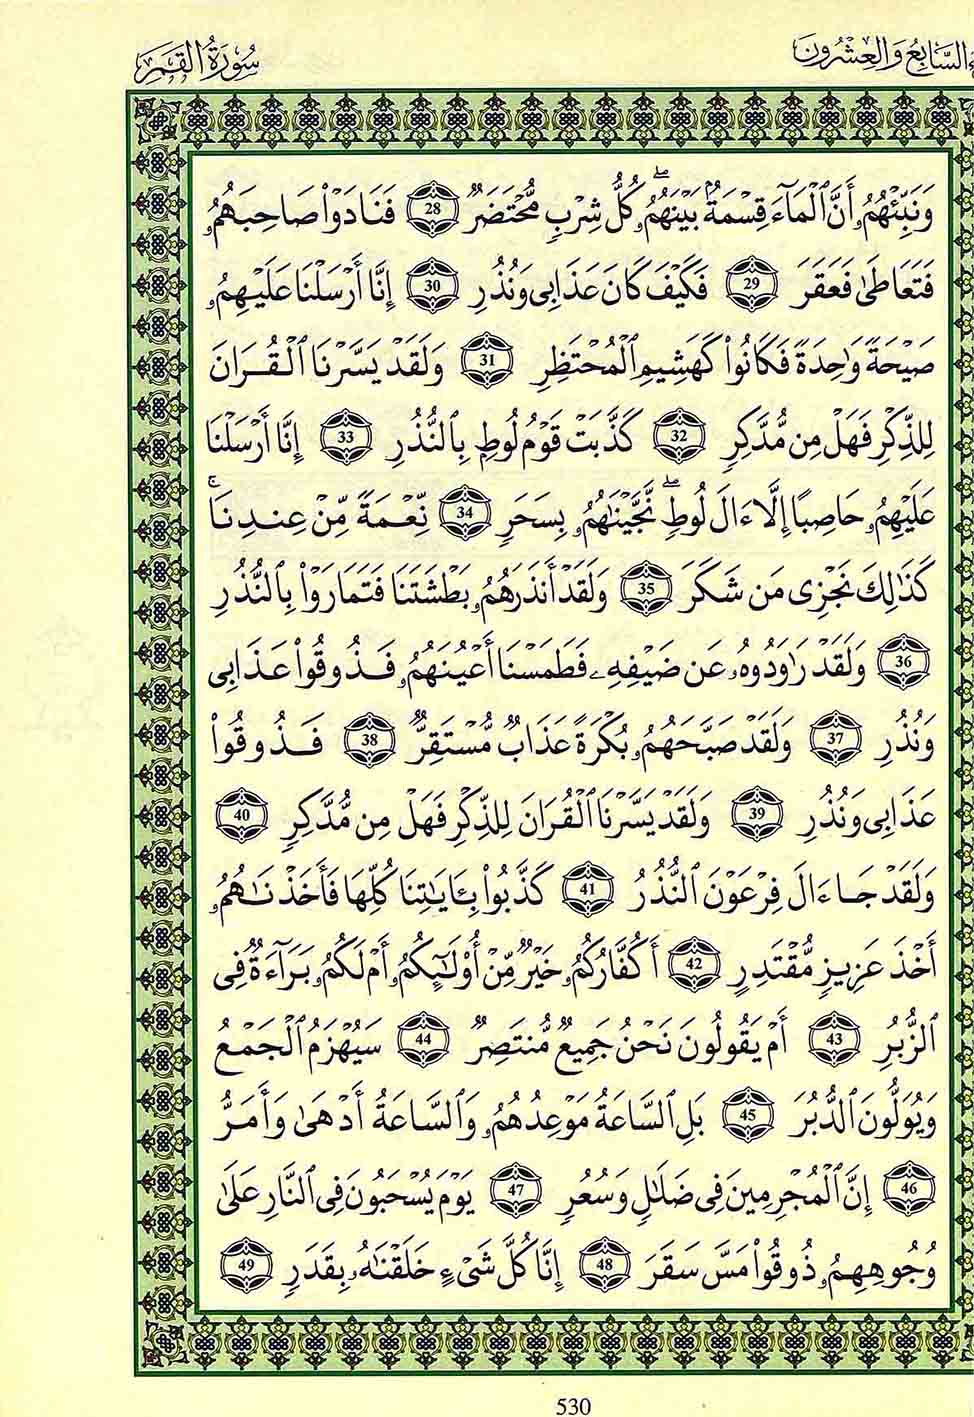 السَّابِعُ وَالْعِشْرُونَ سُورَةُ الْقَمَرِ
وَنَبِّئْهُمُۥ أَنَّ ٱلْمَآءَ قِسْمَةٌۢ بَيْنَهُمُۥ كُلُّ شِرْبٍ مُّحْتَضَرٌ 28 فَنَادَوْاْ صَاحِبَهُمُۥ
فَتَعَاطَىٰ فَعَقَرَ 29 فَكَيْفَ كَانَ عَذَابِى وَنُذُرِ 30 إِنَّا أَرْسَلْنَا عَلَيْهِمُۥ
صَيْحَةً وَٰحِدَةً فَكَانُواْ كَهَشِيمِ ٱلْمُحْتَظِرِ 31 وَلَقَدْ يَسَّرْنَا ٱلْقُرَانَ
لِلذِّكْرِ فَهَلْ مِن مُّدَّكِرٍ 32 كَذَّبَتْ قَوْمُ لُوطٍ بِٱلنُّذُرِ 33 إِنَّا أَرْسَلْنَا
عَلَيْهِمُۥ حَاصِبًا إِلَّا ءَالَ لُوطٍ نَّجَّيْنَٰهُمُۥ بِسَحَرٍ 34 نِّعْمَةً مِّنْ عِندِنَا
كَذَٰلِكَ نَجْزِى مَن شَكَرَ 35 وَلَقَدْ أَنذَرَهُمُۥ بَطْشَتَنَا فَتَمَارَوْاْ بِالنُّذُرِ
36 وَلَقَدْ رَٰوَدُوهُۥ عَن ضَيْفِهِۦ فَطَمَسْنَا أَعْيُنَهُمُۥ فَذُوقُواْ عَذَابِى
وَنُذُرِ 37 وَلَقَدْ صَبَّحَهُمُۥ بُكْرَةً عَذَابٌ مُّسْتَقِرٌّ 38 فَذُوقُواْ
عَذَابِى وَنُذُرِ 39 وَلَقَدْ يَسَّرْنَا ٱلْقُرَانَ لِلذِّكْرِ فَهَلْ مِن مُّدَّكِرٍ 40
وَلَقَدْ جَاءَالَ فِرْعَوْنَ ٱلنُّذُرُ 41 كَذَّبُواْ بِـَٔايَٰتِنَا كُلِّهَا فَأَخَذْنَاهُمُۥ
أَخْذَ عَزِيزٍ مُّقْتَدِرٍ 42 أَكُفَّارُكُمُۥ خَيْرٌ مِّنْ أُوْلَٰٓئِكُمُۥ أَمْ لَكُمُۥ بَرَآءَةٌ فِى
ٱلزُّبُرِ 43 أَمْ يَقُولُونَ نَحْنُ جَمِيعٌ مُّنتَصِرٌ 44 سَيُهْزَمُ ٱلْجَمْعُ
وَيُوَلُّونَ ٱلدُّبُرَ 45 بَلِ ٱلسَّاعَةُ مَوْعِدُهُمُۥ وَٱلسَّاعَةُ أَدْهَىٰ وَأَمَرُّ
46 إِنَّ ٱلْمُجْرِمِينَ فِى ضَلَٰلٍ وَسُعُرٍ 47 يَوْمَ يُسْحَبُونَ فِى ٱلنَّارِ عَلَىٰ
وُجُوهِهِمُۥ ذُوقُواْ مَسَّ سَقَرَ 48 إِنَّا كُلَّ شَىْءٍ خَلَقْنَٰهُۥ بِقَدَرٍ 49
530